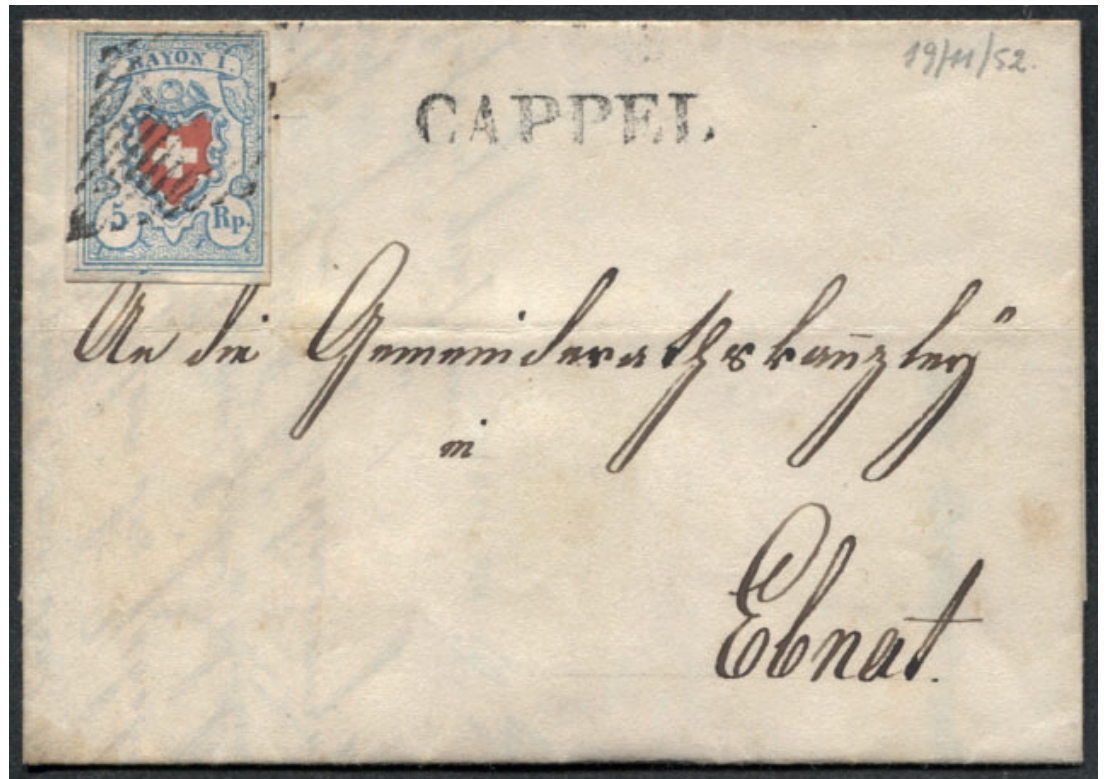 RAYON I.
5 Rp.
19/11/52.
CAPPEL
An die Gemeinderathskanzley
in
Ebnat.